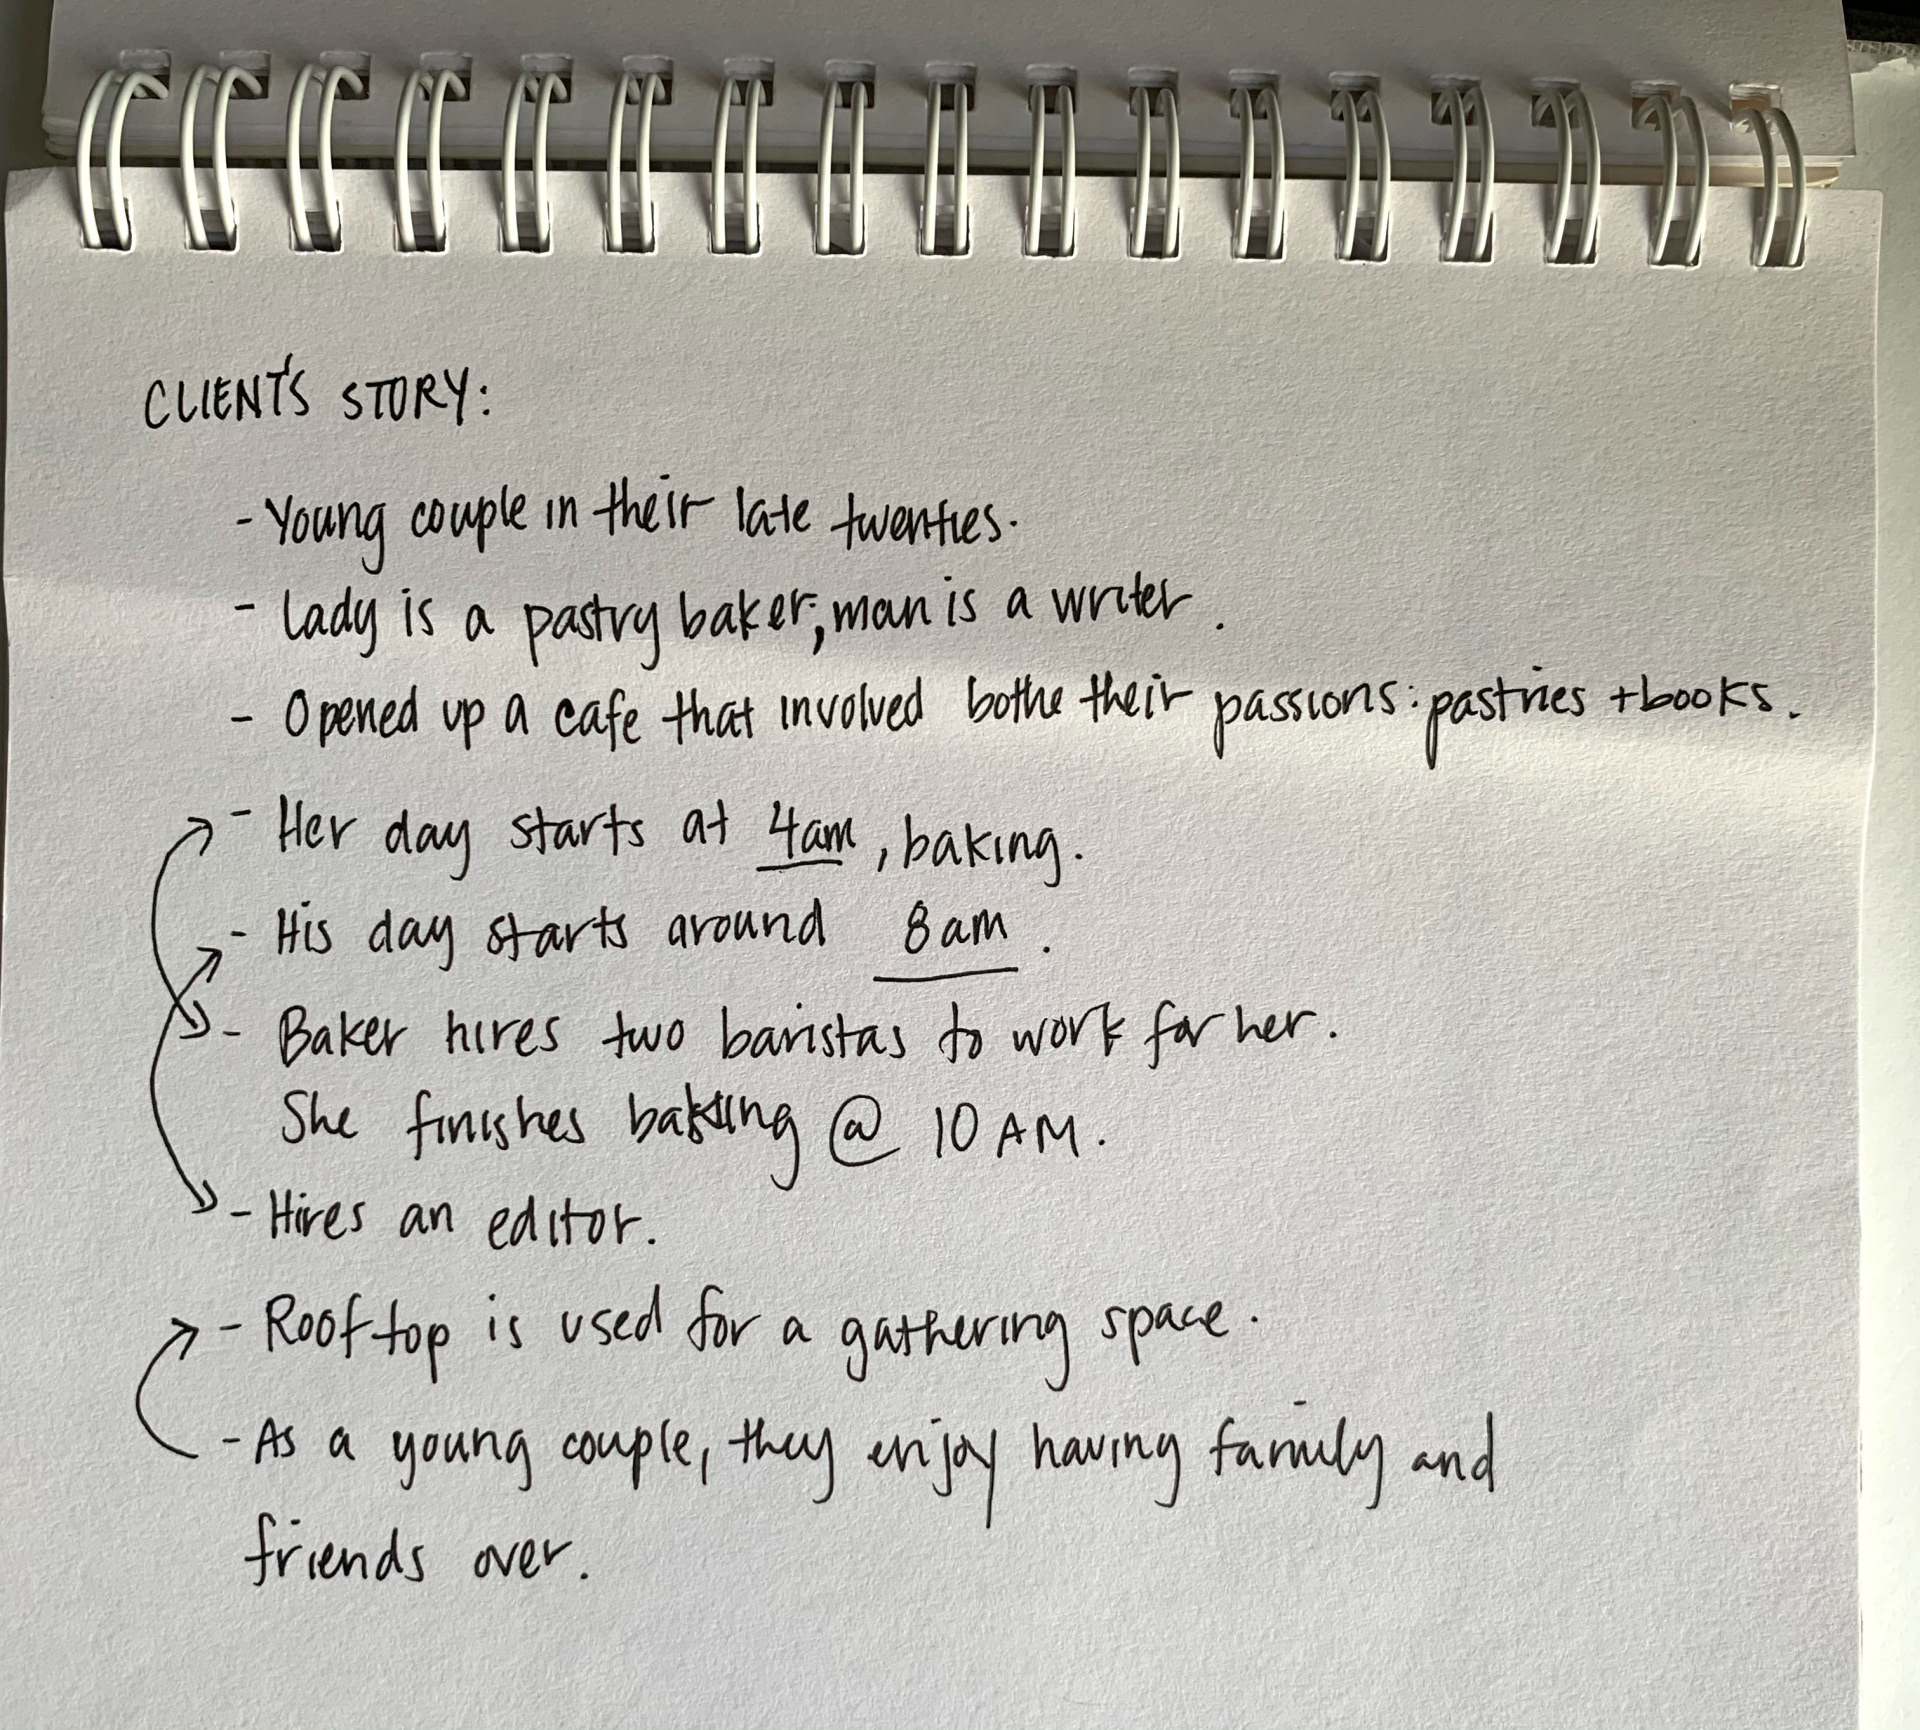 CLIENT'S STORY:
- Young couple in their late twenties.
- Lady is a pastry baker; man is a writer.
- Opened up a cafe that involved bothe their passions: pastries + books.
- Her day starts at 4am, baking.
- His day starts around 8am.
- Baker hires two baristas to work for her.
She finishes baking @ 10 AM.
- Hires an editor.
- Rooftop is used for a gathering space.
- As a young couple, they enjoy having family and
friends over.